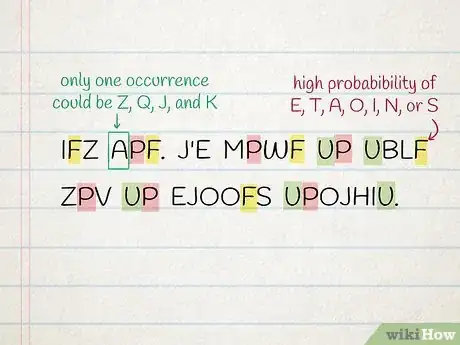 only one occurrence
could be Z, Q, J, and K
high probabibility of
E, T, A, O, I, N, or S
IFZ APF. J'E MPWF UP UBLF
ZPV UP EJOOFS UPOJHIU.
wikiHow